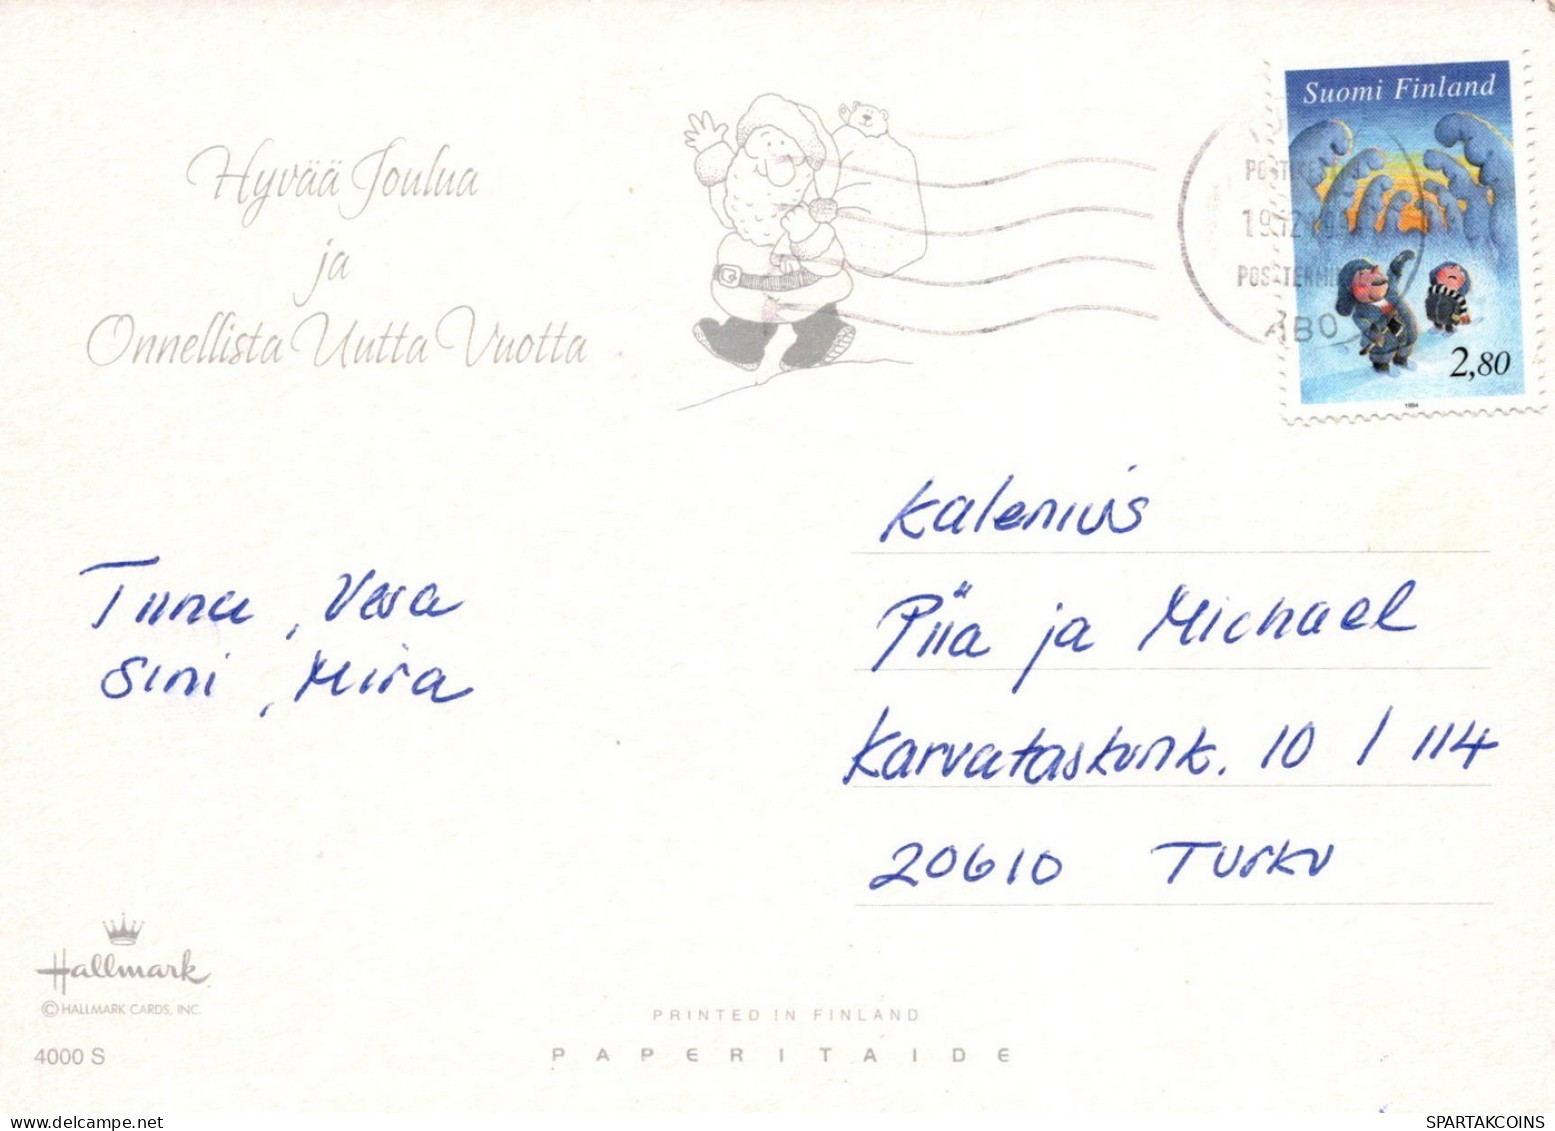 Hyvää Joulua
ja
Onnellista Uutta Vuotta
Suomi Finland
2,80
1994
ABO
Tiina, Vesa
Sini, Mira
Kalenius
Piia ja Michael
Karvataskunk. 10 / 114
20610 Turku
Hallmark
© HALLMARK CARDS, INC.
4000 S
PRINTED IN FINLAND
PAPERITAIDE
www.delcampe.net
SPARTAKCOINS